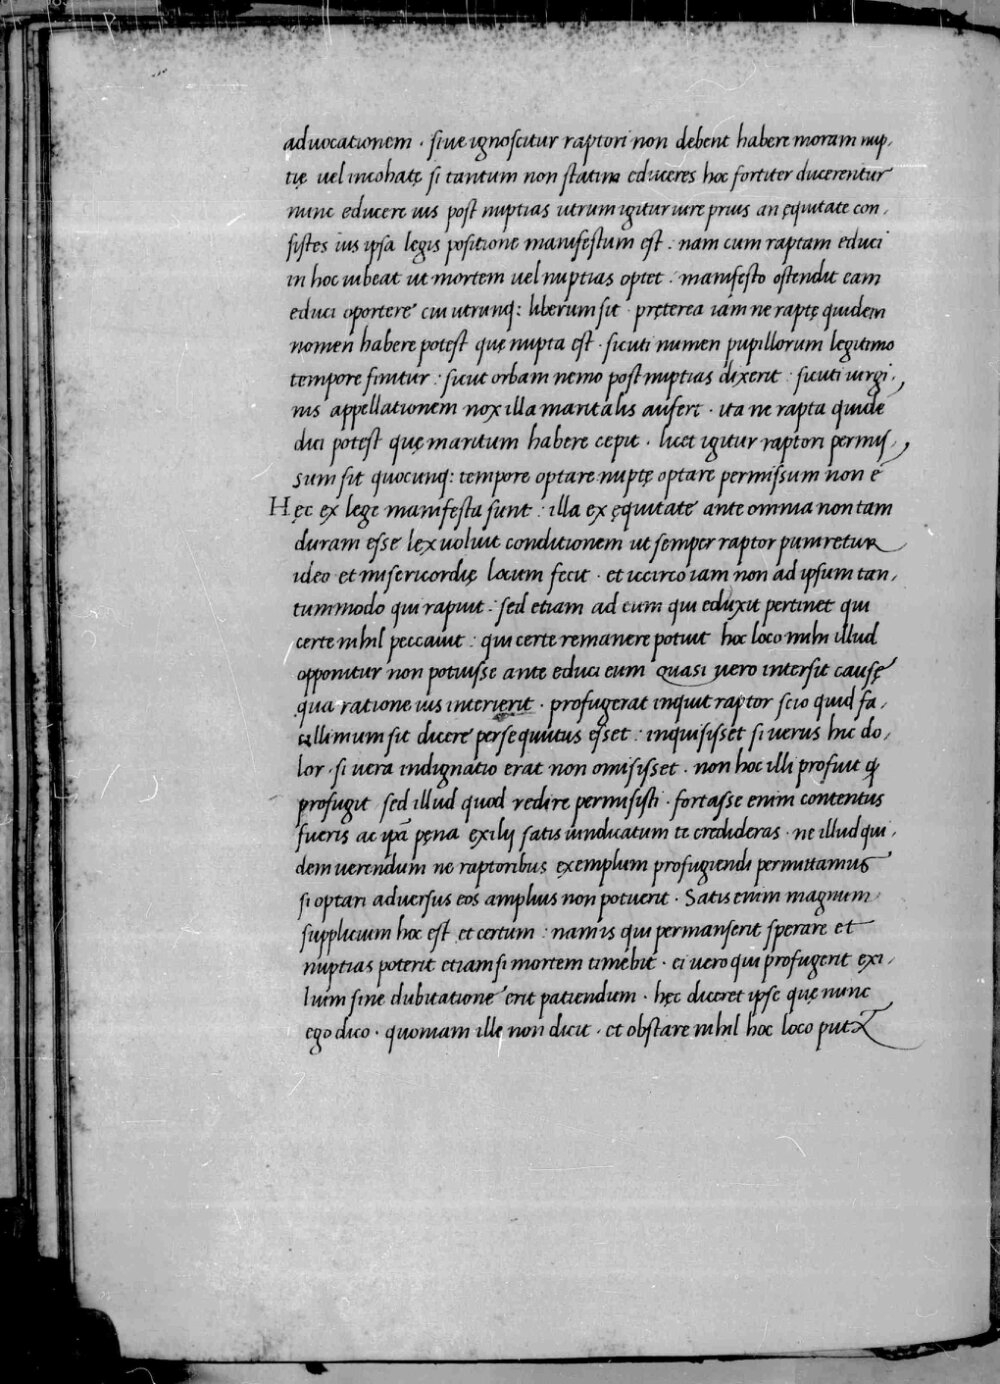 advocationem · sive ignoscitur raptori non debent habere moram nup,
tię vel incohatę si tantum non statim educeres hoc fortiter ducerentur
nunc educere ius post nuptias utrum igitur iure prius an ęquitate con,
sistes ius ipsa legis positione manifestum est : nam cum raptam educi
in hoc iubeat ut mortem vel nuptias optet : manifesto ostendit eam
educi oportere cui utrunq: liberum sit · pręterea iam ne raptę quidem
nomen habere potest quę nupta est · sicuti numen pupillorum legitimo
tempore finitur : sicut orbam nemo post nuptias dixerit : sicuti virgi,
nis appellationem nox illa maritalis aufert · ita ne rapta quidē
dici potest quę maritum habere cępit · licet igitur raptori permis,
sum sit quocunq: tempore optare nuptę optare permissum non ē
Hęc ex lege manifesta sunt : illa ex ęquitate ante omnia non tam
duram esse lex voluit conditionem ut semper raptor puniretur
ideo et misericordię locum fecit · et iccirco iam non ad ipsum tan,
tummodo qui rapuit : sed etiam ad eum qui eduxit pertinet qui
certe nihil peccavit : qui certe remanere potuit hoc loco mihi illud
opponitur non potuisse ante educi eum quasi vero intersit causę
qua ratione ius interierit · profugerat inquit raptor scio quid fa,
cillimum sit dicere persequutus esset : inquisisset si verus hic do,
lor · si vera indignatio erat non omisisset · non hoc illi profuit q̄
profugit sed illud quod redire permisisti · fortasse enim contentus
fueris ac ipā pęna exilij satis vindicatum te credideras · ne illud qui,
dem verendum ne raptoribus exemplum profugiendi permittamus
si optari adversus eos amplius non potuerit · Satis enim magnum
supplicium hoc est et certum : nam is qui permanserit sperare et
nuptias poterit etiam si mortem timebit · ei vero qui profugerit exi,
lium sine dubitatione erit patiendum · hęc diceret ipse quę nunc
ego dico · quoniam ille non dicit · et obstare nihil hoc loco putat